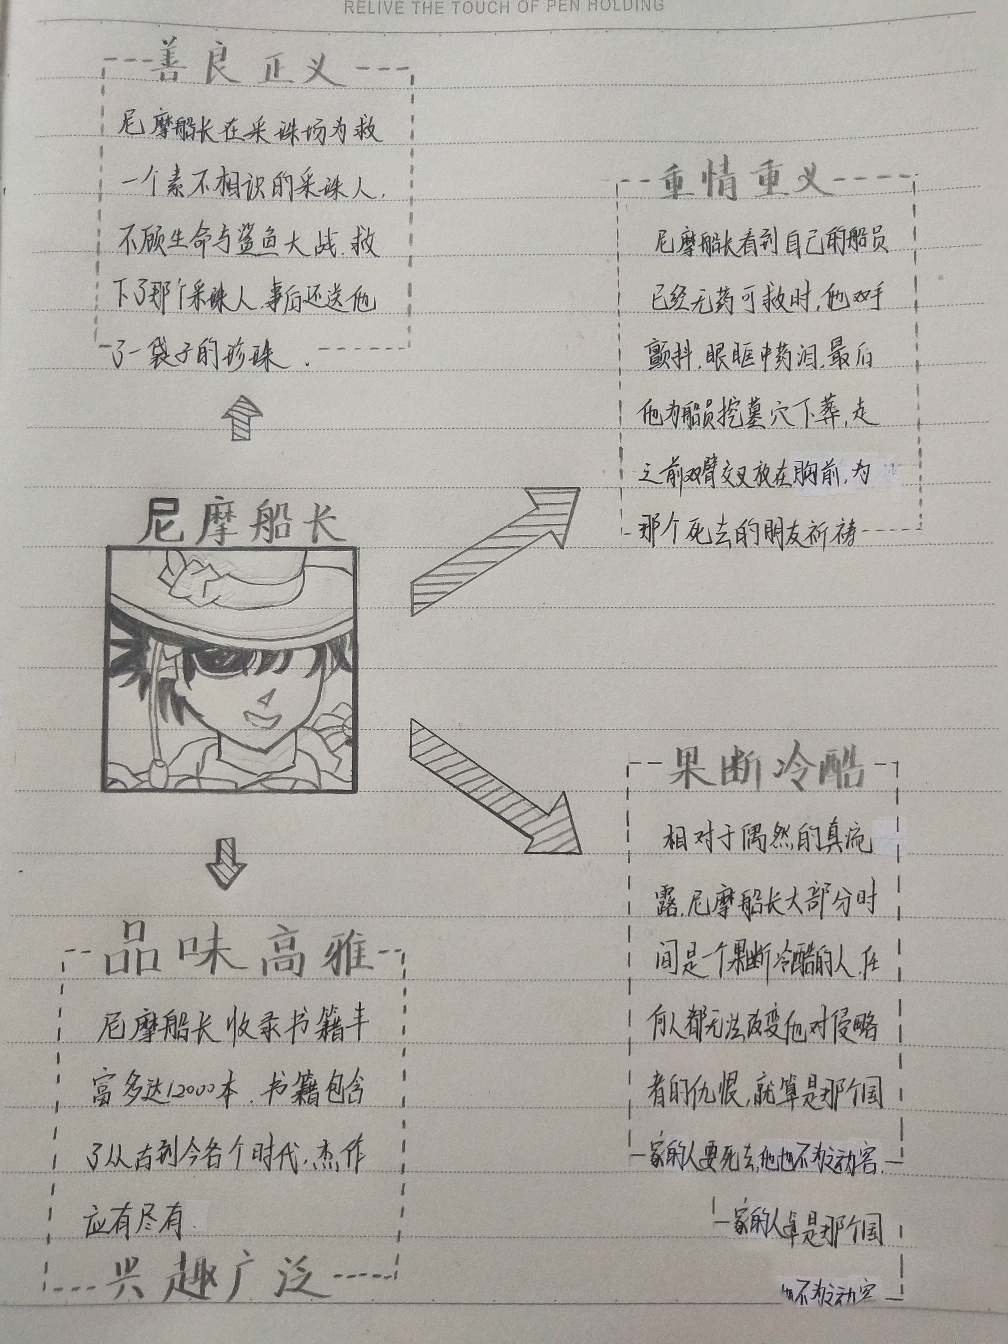 RELIVE THE TOUCH OF PEN HOLDING
善良正义
尼摩船长在采珠场为救
一个素不相识的采珠人,
不顾生命与鲨鱼大战,救
下了那个采珠人,事后还送他
了一袋子的珍珠.
重情重义
尼摩船长看到自己的船员
已经无药可救时,他双手
颤抖,眼眶中药泪,最后
他为船员挖墓穴下葬,走
之前双臂交叉放在胸前,为
那个死去的朋友祈祷
尼摩船长
果断冷酷
相对于偶然的真流
露,尼摩船长大部分时
间是一个果断冷酷的人,任
何人都无法改变他对侵略
者的仇恨,就算是那个国
家的人要死去,他也不为之动容.
家的人
算是那个国
不为之动容
品味高雅
尼摩船长收录书籍丰
富多达12000本,书籍包含
了从古到今各个时代,杰作
应有尽有.
兴趣广泛